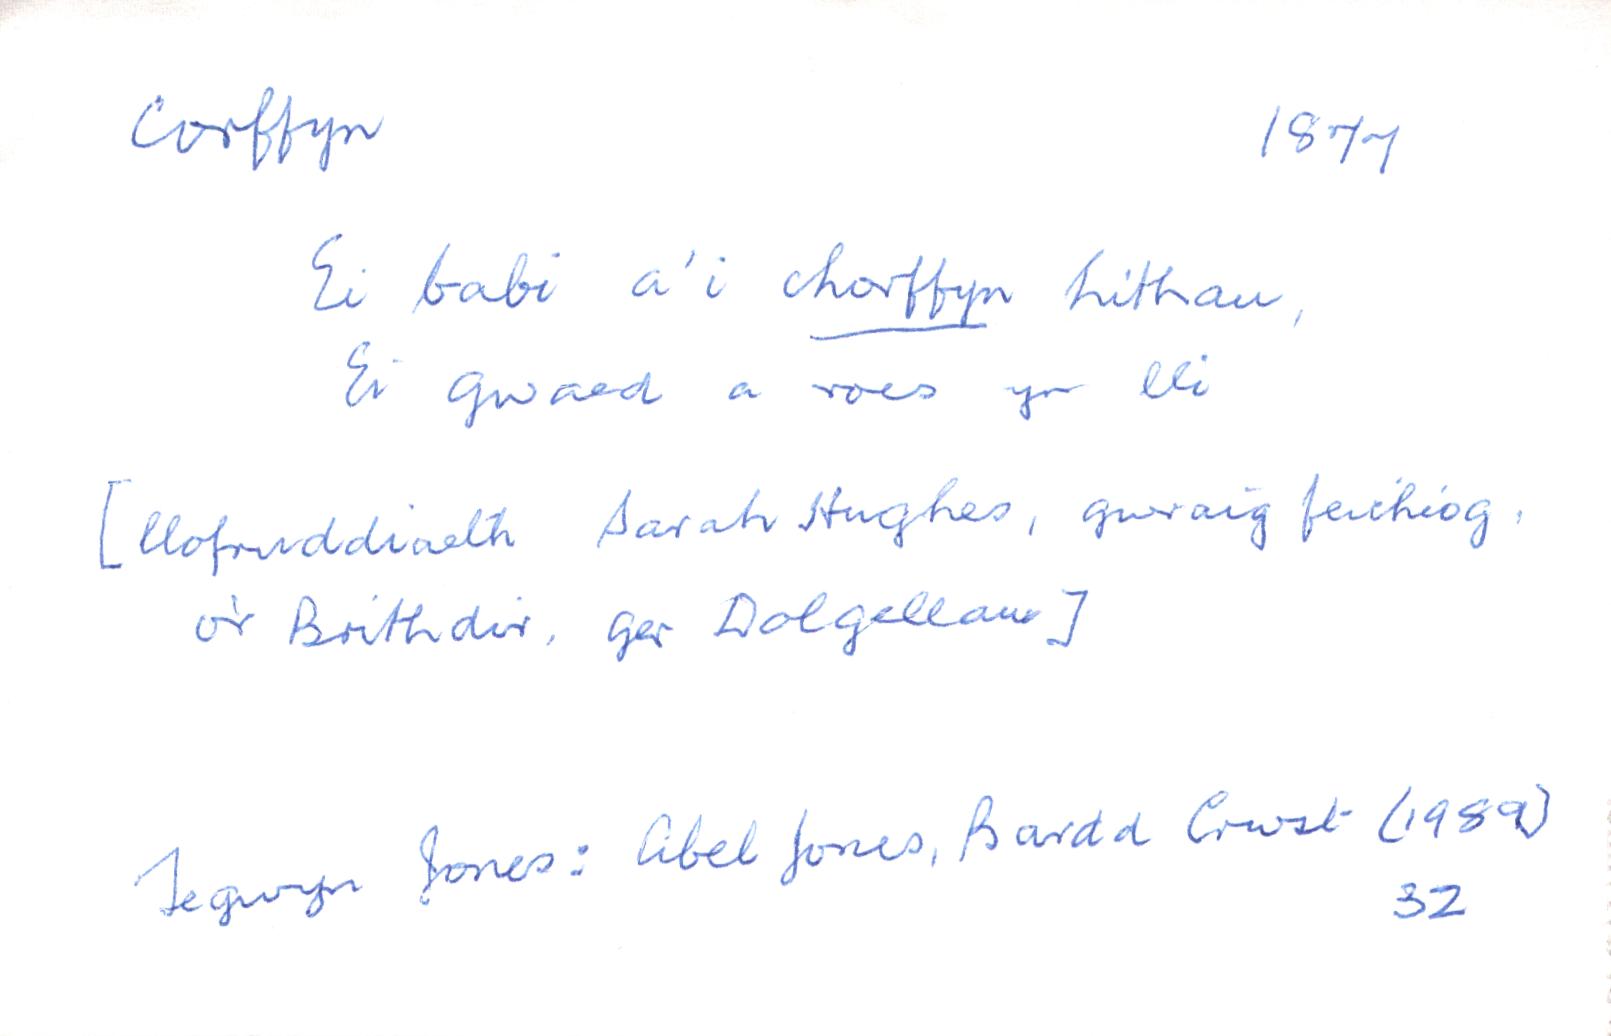 Corffyn 1877
Ei babi a'i chorffyn hithau,
Ei gwaed a roes yn lli
[llofruddiaeth Sarah Hughes, gwraig feichiog,
o'r Brithdir, ger Dolgellau]
Tegwyn Jones: Abel Jones, Bardd Crwst (1989)
32